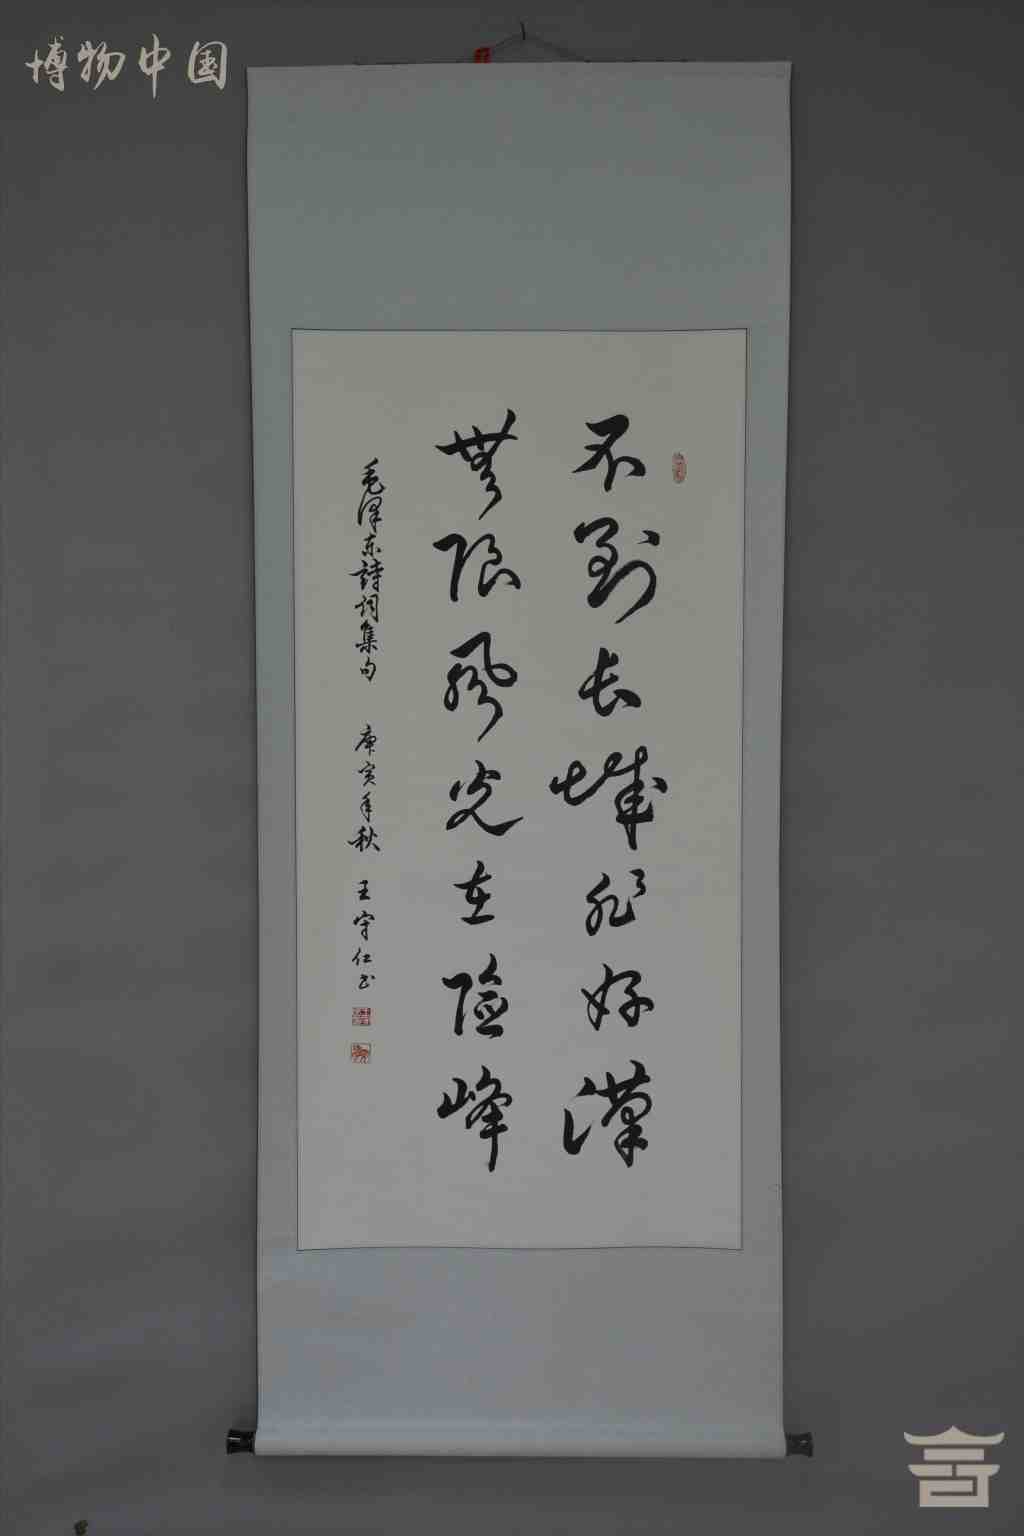 博物中国
不到长城非好漢
無限風光在險峰
毛泽东詩词集句 庚寅年秋 王守仁书